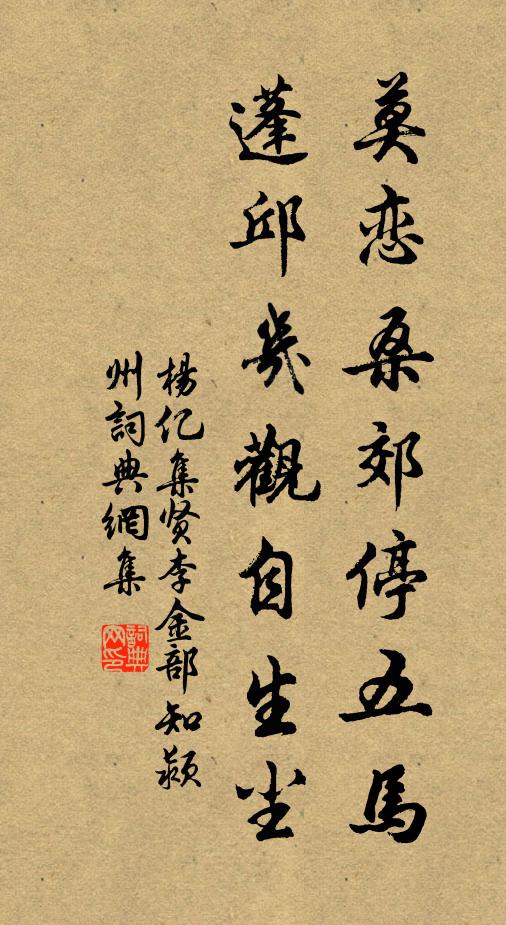 莫恋桑郊停五馬
蓬邱几觀自生尘
楊亿集贤李金部知颍
州詞典網集
詞典网印